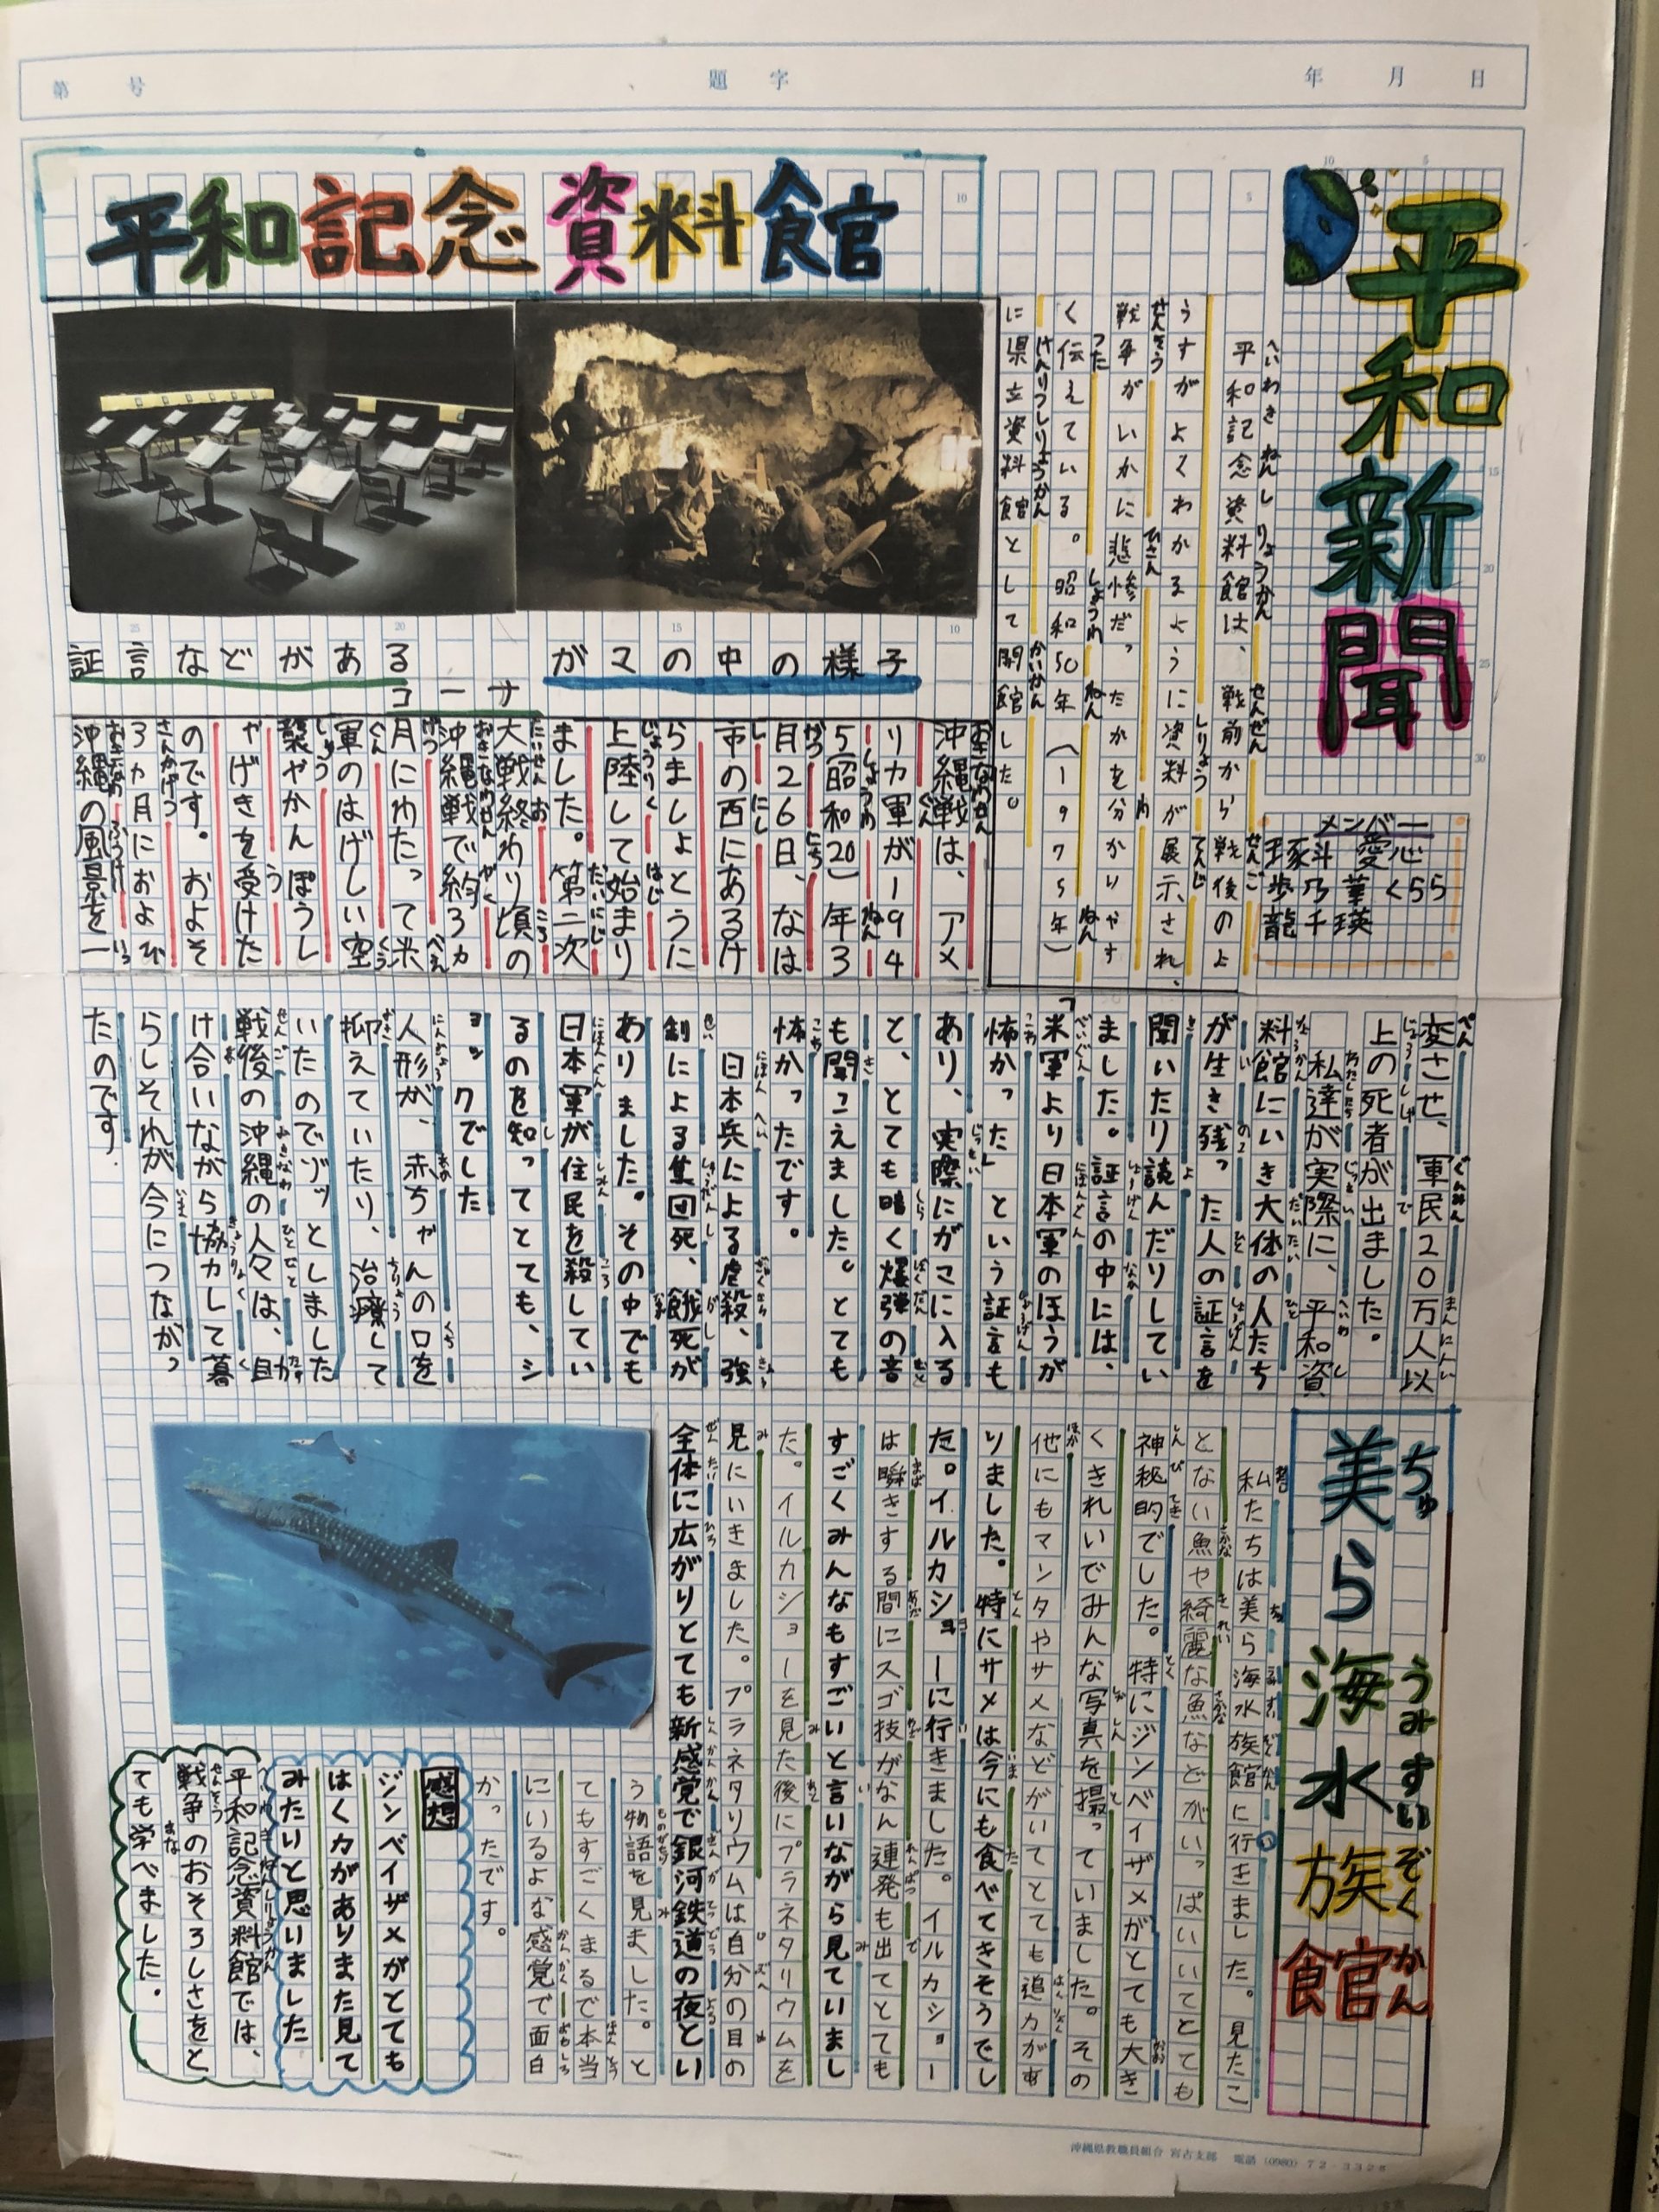 第 号 題 字 年 月 日
平和新聞
メンバー
愛心 くらら
琢斗 乃華 千瑛
歩龍
平和記念資料館は、戦前から戦後のよ
うすがよくわかるように資料が展示され、
戦争がいかに悲惨だったかを分かりやす
く伝えている。昭和50年(1975年)
に県立資料館として開館した。
平和記念資料館
ガマの中の様子
証言などがある
コーナー
沖縄戦は、アメ
リカ軍が194
5(昭和20)年3
月26日、なは
市の西にあるけ
らましょとうに
上陸して始まり
ました。第二次
大戦終わり頃の
沖縄戦で約3カ
月にわたって米
軍のはげしい空
襲やかんぽうし
ゃげきを受けた
のです。およそ
3ヵ月におよび
沖縄の風景を一
変させ、軍民20万人以
上の死者が出ました。
私達が実際に、平和資
料館にいき大体の人たち
が生き残った人の証言を
聞いたり読んだりしてい
ました。証言の中には、
「米軍より日本軍のほうが
怖かった」という証言も
あり、実際にガマに入る
と、とても暗く爆弾の音
も聞こえました。とても
怖かったです。
日本兵による虐殺、強
制による集団死、餓死が
ありました。その中でも
日本軍が住民を殺してい
るのを知ってとても、シ
ョックでした
人形が、赤ちゃんの口を
抑えていたり、治療して
いたのでゾッとしました
戦後の沖縄の人々は、助
け合いながら協力して暮
らしそれが今につながっ
たのです.
美ら海水族館
ちゅ うみすいぞくかん
私たちは美ら海水族館に行きました。見たこ
とない魚や綺麗な魚などがいっぱいいてとても
神秘的でした。特にジンベイザメがとても大き
くきれいでみんな写真を撮っていました。その
他にもマンタやサメなどがいてとても迫力があ
りました。特にサメは今にも食べてきそうでし
た。イルカショーに行きました。イルカショー
は瞬きする間にスゴ技がなん連発も出てとても
すごくみんなもすごいと言いながら見ていまし
た。イルカショーを見た後にプラネタリウムを
見にいきました。プラネタリウムは自分の目の
全体に広がりとても新感覚で銀河鉄道の夜とい
う物語を見ました。と
てもすごくまるで本当
にいるよな感覚で面白
かったです。
感想
ジンベイザメがとても
はく力がありまた見て
みたいと思いました
平和記念資料館では、
戦争のおそろしさをと
ても学べました.
沖縄県教職員組合 宮古支部 電話(0980)72-3328